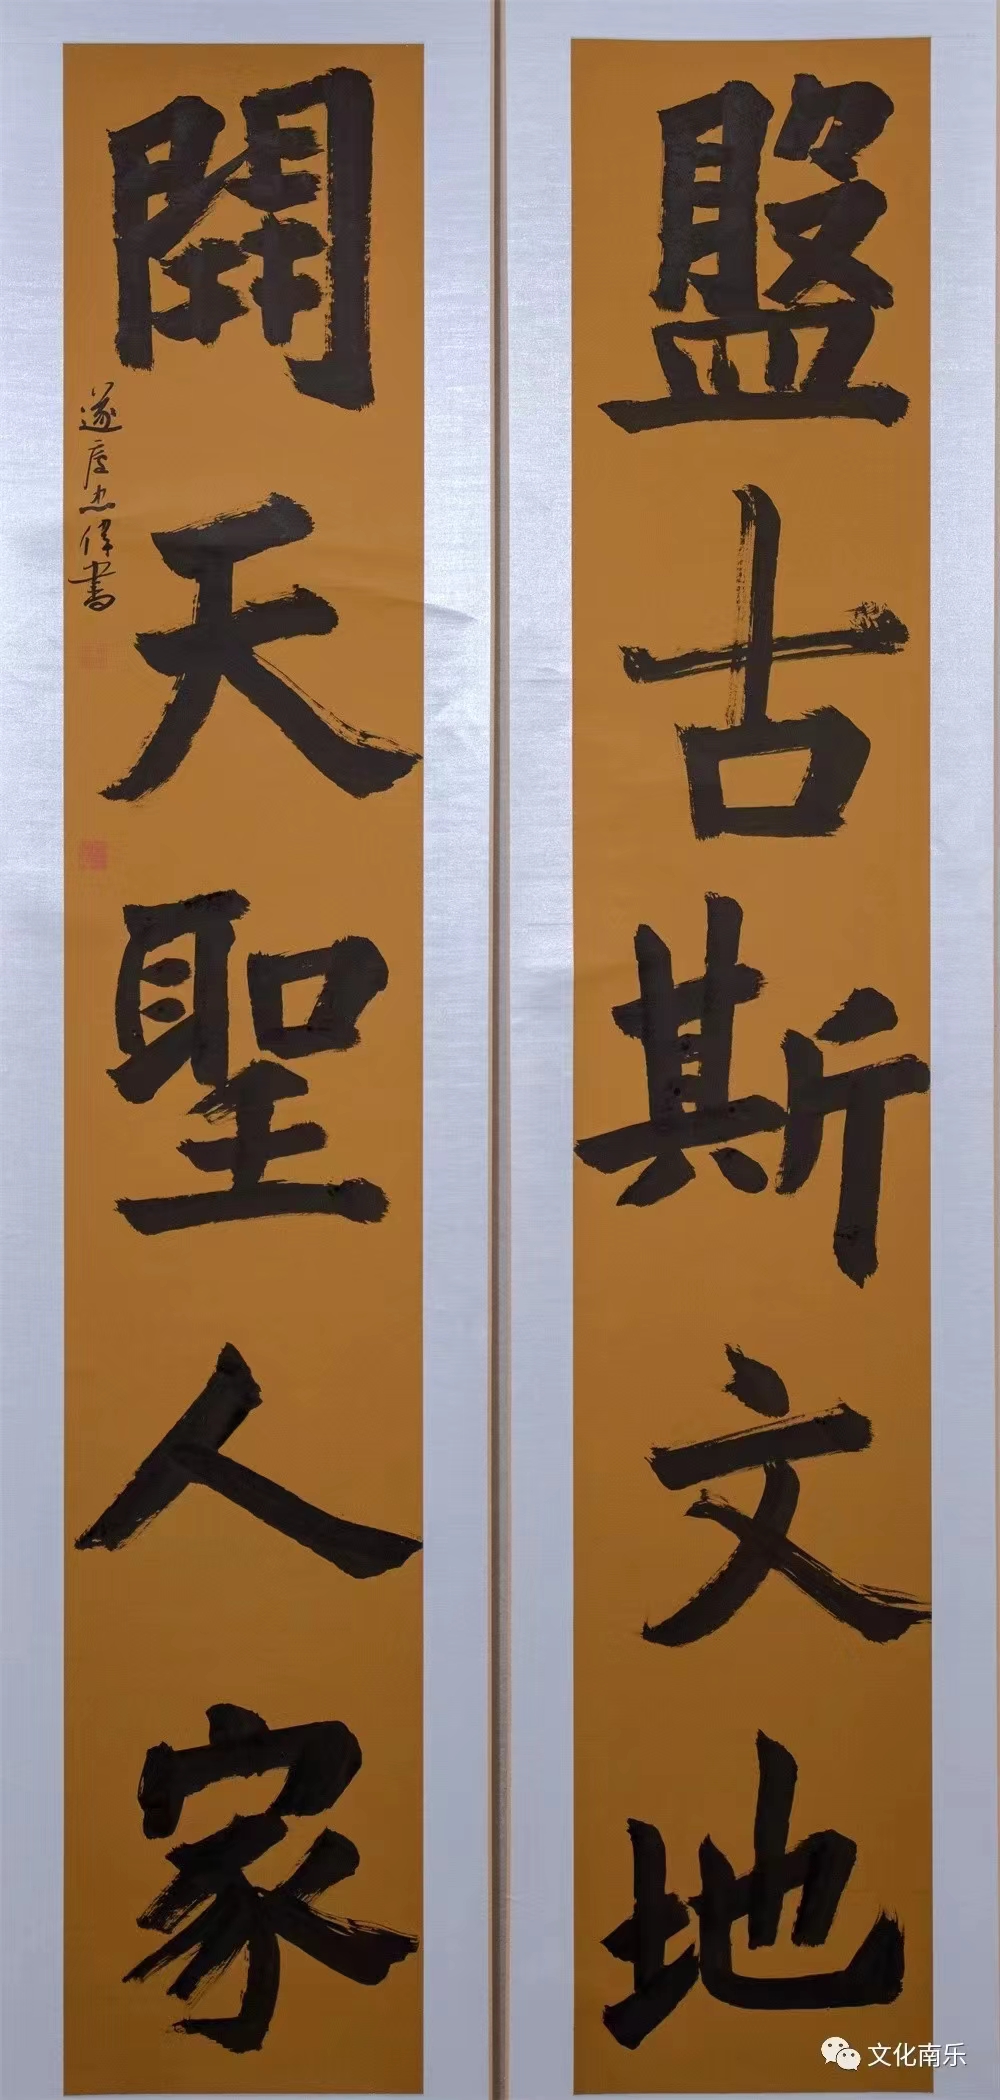 盤古斯文地
開天聖人家
遂度杰偉書
文化南乐